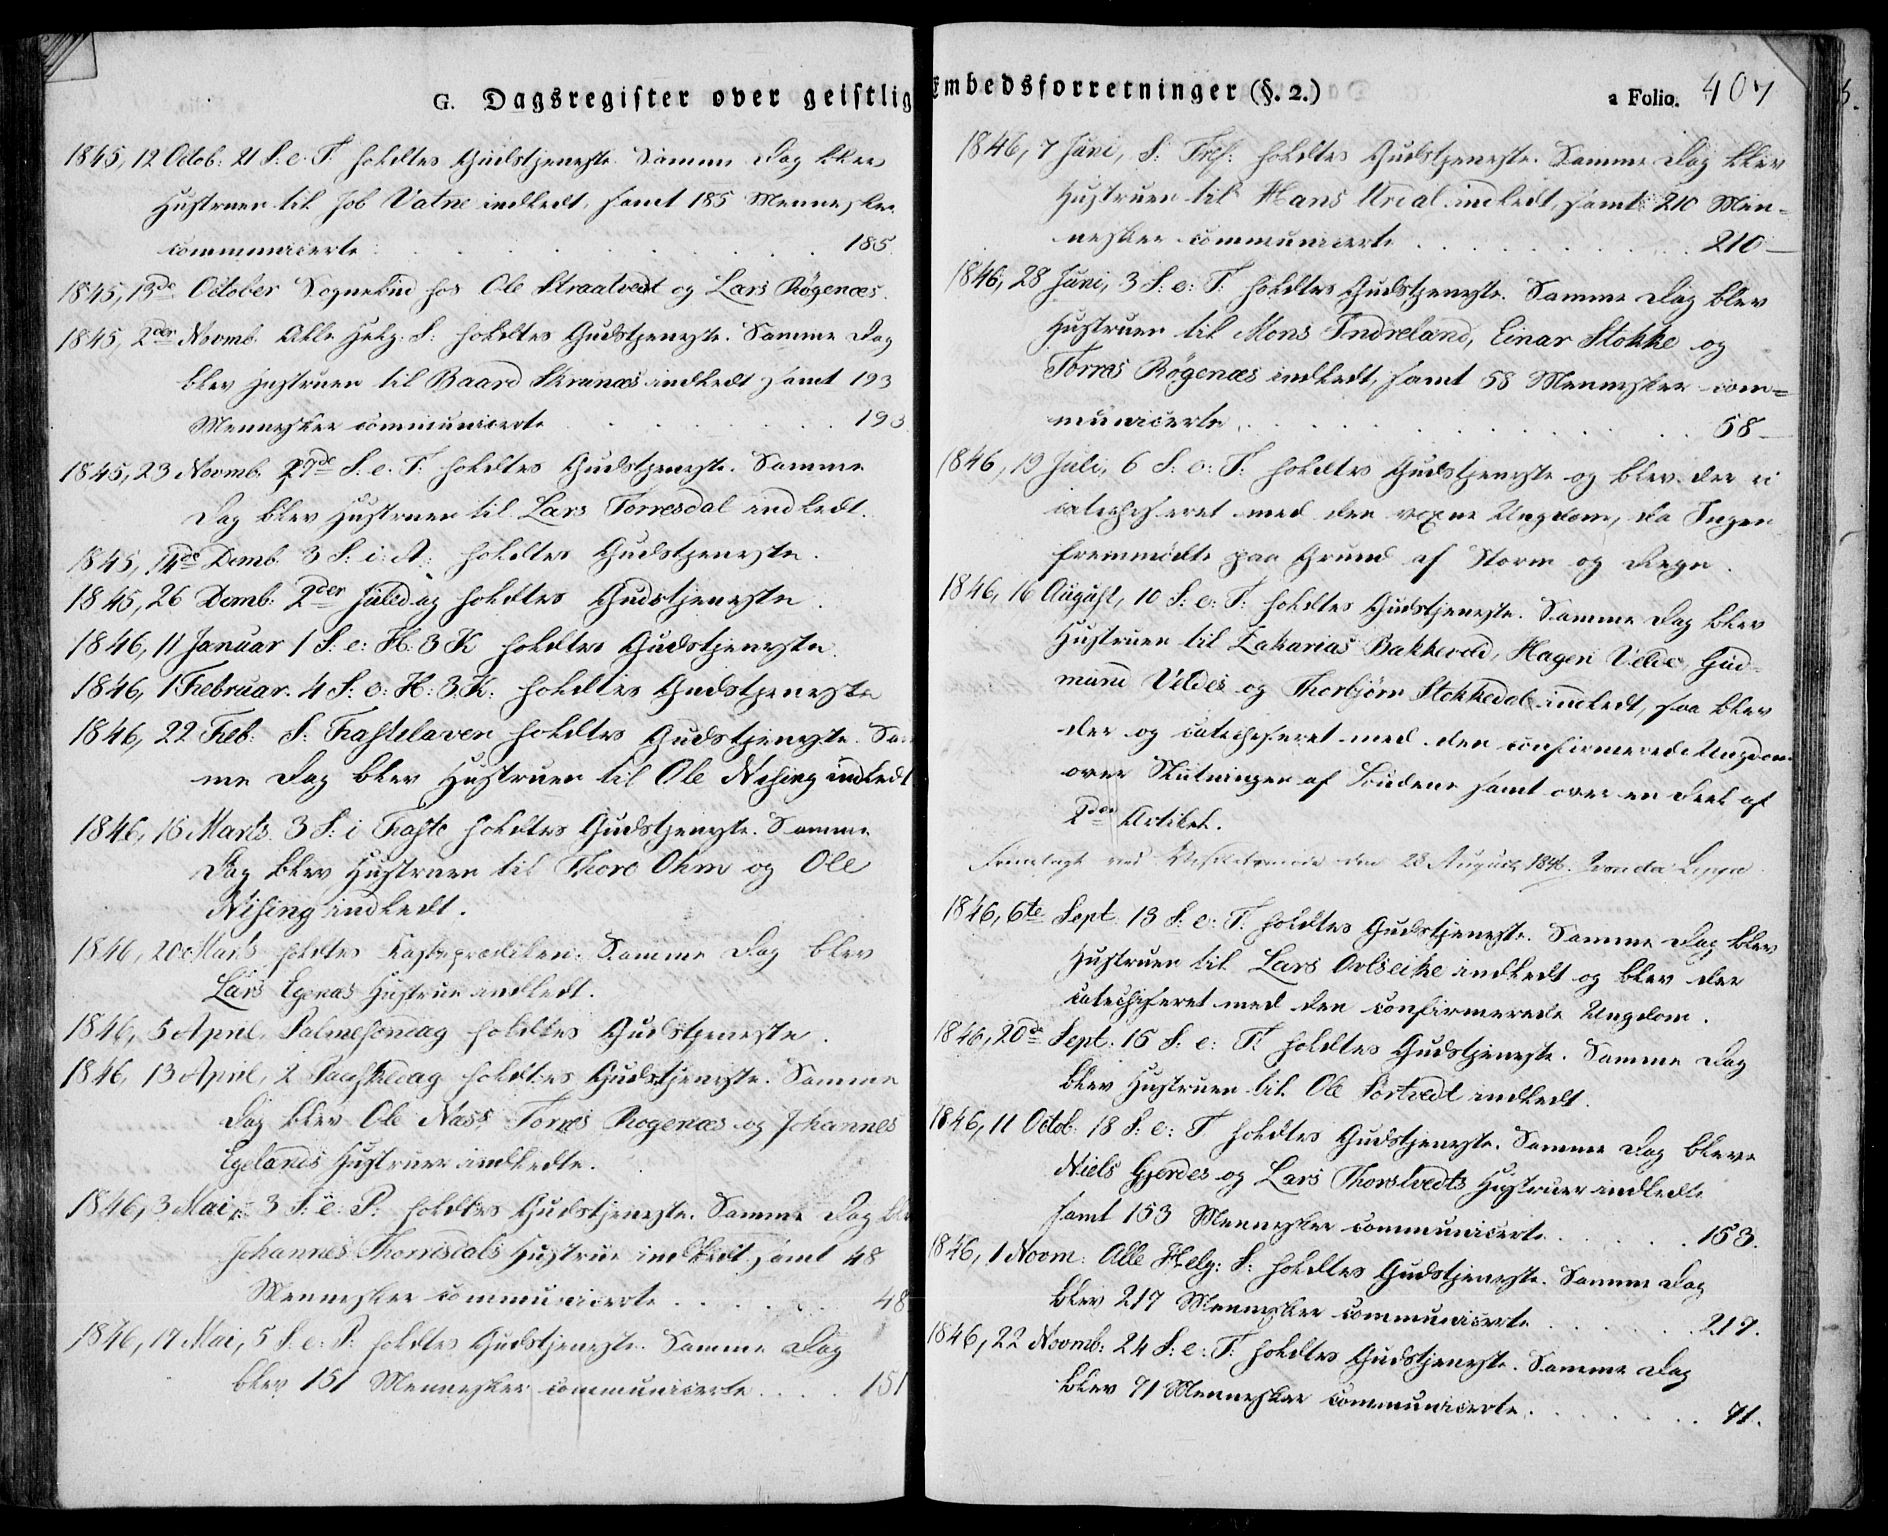 G. Dagsregister over geistlig
1845, 12 Octob: 21 S: e: T: holdtes Gudstjeneste. Samme Dag blev
Hustruen til Job Vatne indledt, samt 185 Mennesker
communicerte . . . . . . 185.
1845, 13de October Sognebud hos Ole Straatvedt og Lars Røgenæs.
1845, 2den Novmb. Alle Helg. S: holdtes Gudstjeneste. Samme Dag
blev Hustruen til Baard indledt samt 193
Mennesker communicerte . . . . . . 193
1845, 23 Novmb. 27de S: e: T: holdtes Gudstjeneste. Samme
Dag blev Hustruen til Lars Torresdal indledt.
1845, 14de Demb. 3 S: i: A: holdtes Gudstjeneste.
1845, 26 Demb: 2den Juledag holdtes Gudstjeneste.
1846, 11 Januar 1 S: e: H: 3 K holdtes Gudstjeneste.
1846, 1 Februar. 4 S: e: H: 3 K: holdtes Gudstjeneste
1846, 22 Feb: S: Fastelaven holdtes Gudstjeneste. Sam
me Dag blev Hustruen til Ole indledt
1846, 16 Marts. 3 S: i Faste holdtes Gudstjeneste. Samme
Dag blev Hustruen til Thore Ohm og Ole
indledt.
1846, 20 Marts holdtes Fasteprædiken. Samme Dag blev
Lars Egenæs Hustrue indledt.
1846, 5 April, Palmesöndag holdtes Gudstjeneste.
1846, 13 April, 2 Paaskedag holdtes Gudstjeneste. Samme
Dag blev Ole Næss Torres Rogenæs og Johannes
Egelands Hustruer indledte.
1846, 3 Mai, 3 S: e: P: holdtes Gudstjeneste. Samme Dag blev
Johannes Hustrue indledt, samt 48
Mennesker communicerte . . . . . 48
1846, 17 Mai, 5 S: e: P: holdtes Gudstjeneste. Samme Dag
blev 151 Mennesker communicerte . . . . 151
Embedsforretninger (§. 2.)
a Folio. 407
1846, 7 Juni, S: Tref: holdtes Gudstjeneste. Samme Dag blev
Hustruen til Hans indledt, samt 210 Men=
nesker communicerte . . . . . . 210
1846, 28 Juni, 3 S: e: T: holdtes Gudstjeneste. Samme Dag blev
Hustruen til Mons Indreland, Einar Stokke og
Torres Røgenæs indledt, samt 58 Mennesker com=
municerte . . . . . . 58
1846, 19 Juli, 6 S: e: T: holdtes Gudstjeneste og blev der ei
catechiseret med den voxne Ungdom, da Ingen
fremmødte paa Grund af Storm og Regn.
1846, 16 August, 10 S: e: T: holdtes Gudstjeneste. Samme Dag blev
Hustruen til Zakarias Bakkevold, Hagen Velde, Gud=
mund Veldes og Thorbjørn Stokkedal indledt, saa blev
der og catechiseret med den confirmerede Ungdom
over Slutningen af Budene samt over en Deel af
2den Artikel.
Fremlagt ved den 28 August 1846.
1846, 6te Sept. 13 S: e: T: holdtes Gudstjeneste. Samme Dag blev
Hustruen til Lars indledt og blev der
catechiseret med den confirmerede Ungdom.
1846, 20de Sept: 15 S: e: T: holdtes Gudstjeneste. Samme Dag
blev Hustruen til Ole Portvedt indledt.
1846, 11 Octob: 18 S: e: T. holdtes Gudstjeneste. Samme Dag bleve
Niels Gjerdes og Lars Thorstvedts Hustruer indledte
samt 153 Mennesker communicerte . . . . . . 153.
1846, 1 Novm. Alle Helg: S: holdtes Gudstjeneste. Samme Dag
blev 217 Mennesker communicerte . . . . . . 217.
1846, 22 Novmb: 24 S: e: T: holdtes Gudstjeneste. Samme Dag
blev 71 Mennesker communicerte . . . . . . 71.